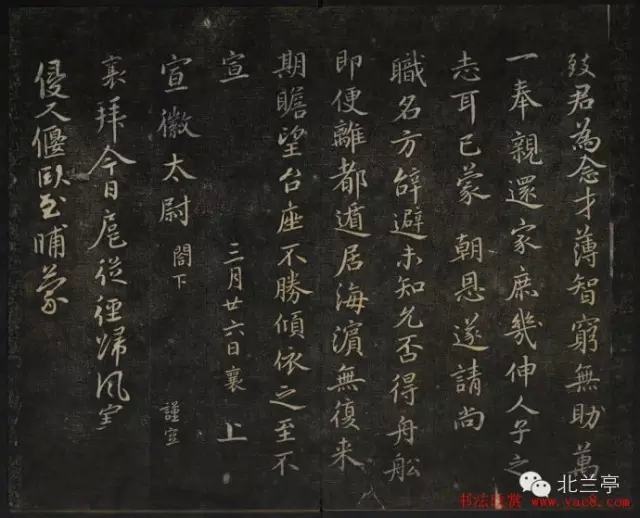 致君為念才薄智窮無助萬
一奉親還家庶幾伸人子之
志耳已蒙 朝恩遂請尚
職名方辭避未知允否得舟舩
即便離都遁居海濱無復来
期瞻望台座不勝傾依之至不
宣
三月廿六日襄 上
宣徽太尉 閤下
謹空
襄拜今日扈從徑歸風室
侵人偃臥至晡蒙
北兰亭
书法欣赏 www.yac8.com